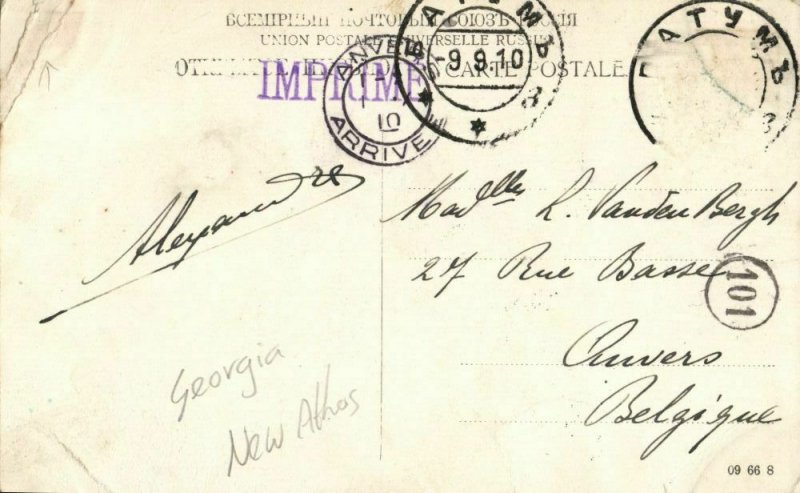 ВСЕМІРНЫЙ ПОЧТОВЫЙ СОЮЗЪ РОССІЯ
UNION POSTALE UNIVERSELLE RUSSIE
CARTE POSTALE
IMPRIMÉ
ANVERS
10
ARRIVEE
БАТУМЪ
-9.9.10
БАТУМЪ
Alexandre
Madlle L. Vanden Bergh
27 Rue Basse
101
Anvers
Belgique
Georgia
New Athos
09 66 8